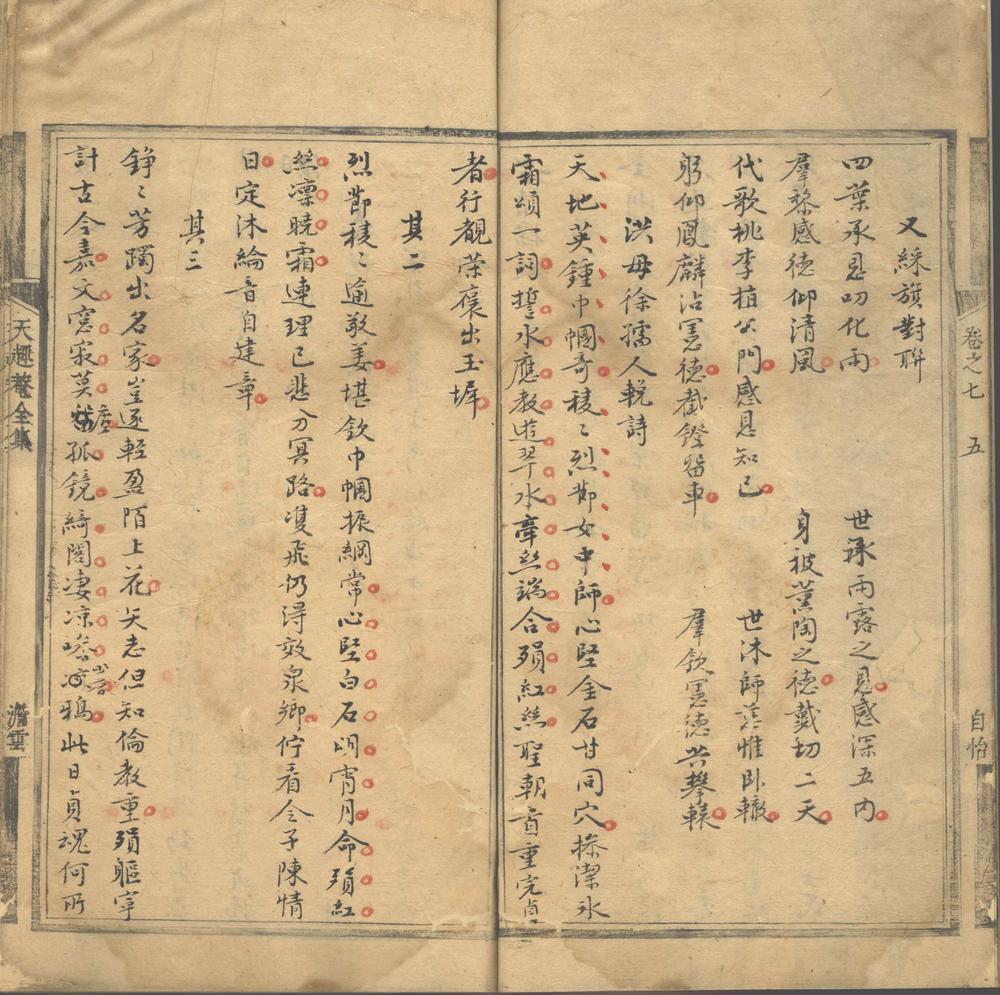 卷之七 五
自怡
又綵旗對聯
四葉承恩叨化雨 世承雨露之恩感深五內
羣黎感德仰清風 身被薰陶之德戴切二天
代歌桃李植公門感恩知己 世沐師 惟臥轍
躬仰鳳麟沾憲德截鐙留車 羣欽憲德共攀轅
洪母徐孺人輓詩
天地英鍾巾幗奇稜〻烈節女中師心堅金石甘同穴操潔氷
霜頌一詞誓水應教 水牽絲端合殞紅絲聖朝首重完貞
者行觀榮褒出玉墀
其二
烈節稜〻逾敬姜堪欽巾幗振綱常心堅白石明宵月命殞紅
絲凜曉霜連理已悲分冥路雙飛仍得效泉鄉佇看令子陳情
日定沐綸音自建章
其三
錚〻芳躅出名家豈逐輕盈陌上花矢志但知倫教重殞軀寧
計古今嘉文窓寂莫 孤鏡綺閣凄凉 鴉此日貞魂何所
天趣菴全集
澹雲